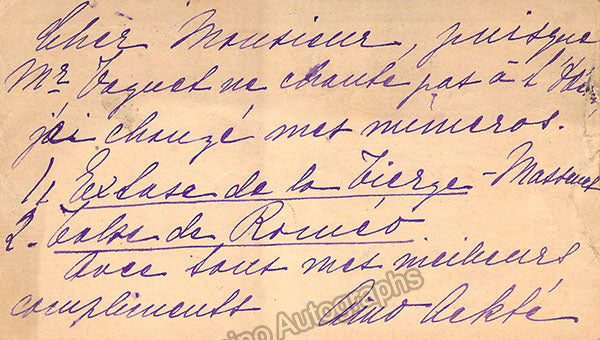 Cher Monsieur, puisque
Mr Vaguet ne chante pas à l'
j'ai changé mes numeros.
1, Extase de la Vierge - Massenet
2. Valse de Roméo
avec tous mes meilleurs
compliments Aino Ackté
Autographs